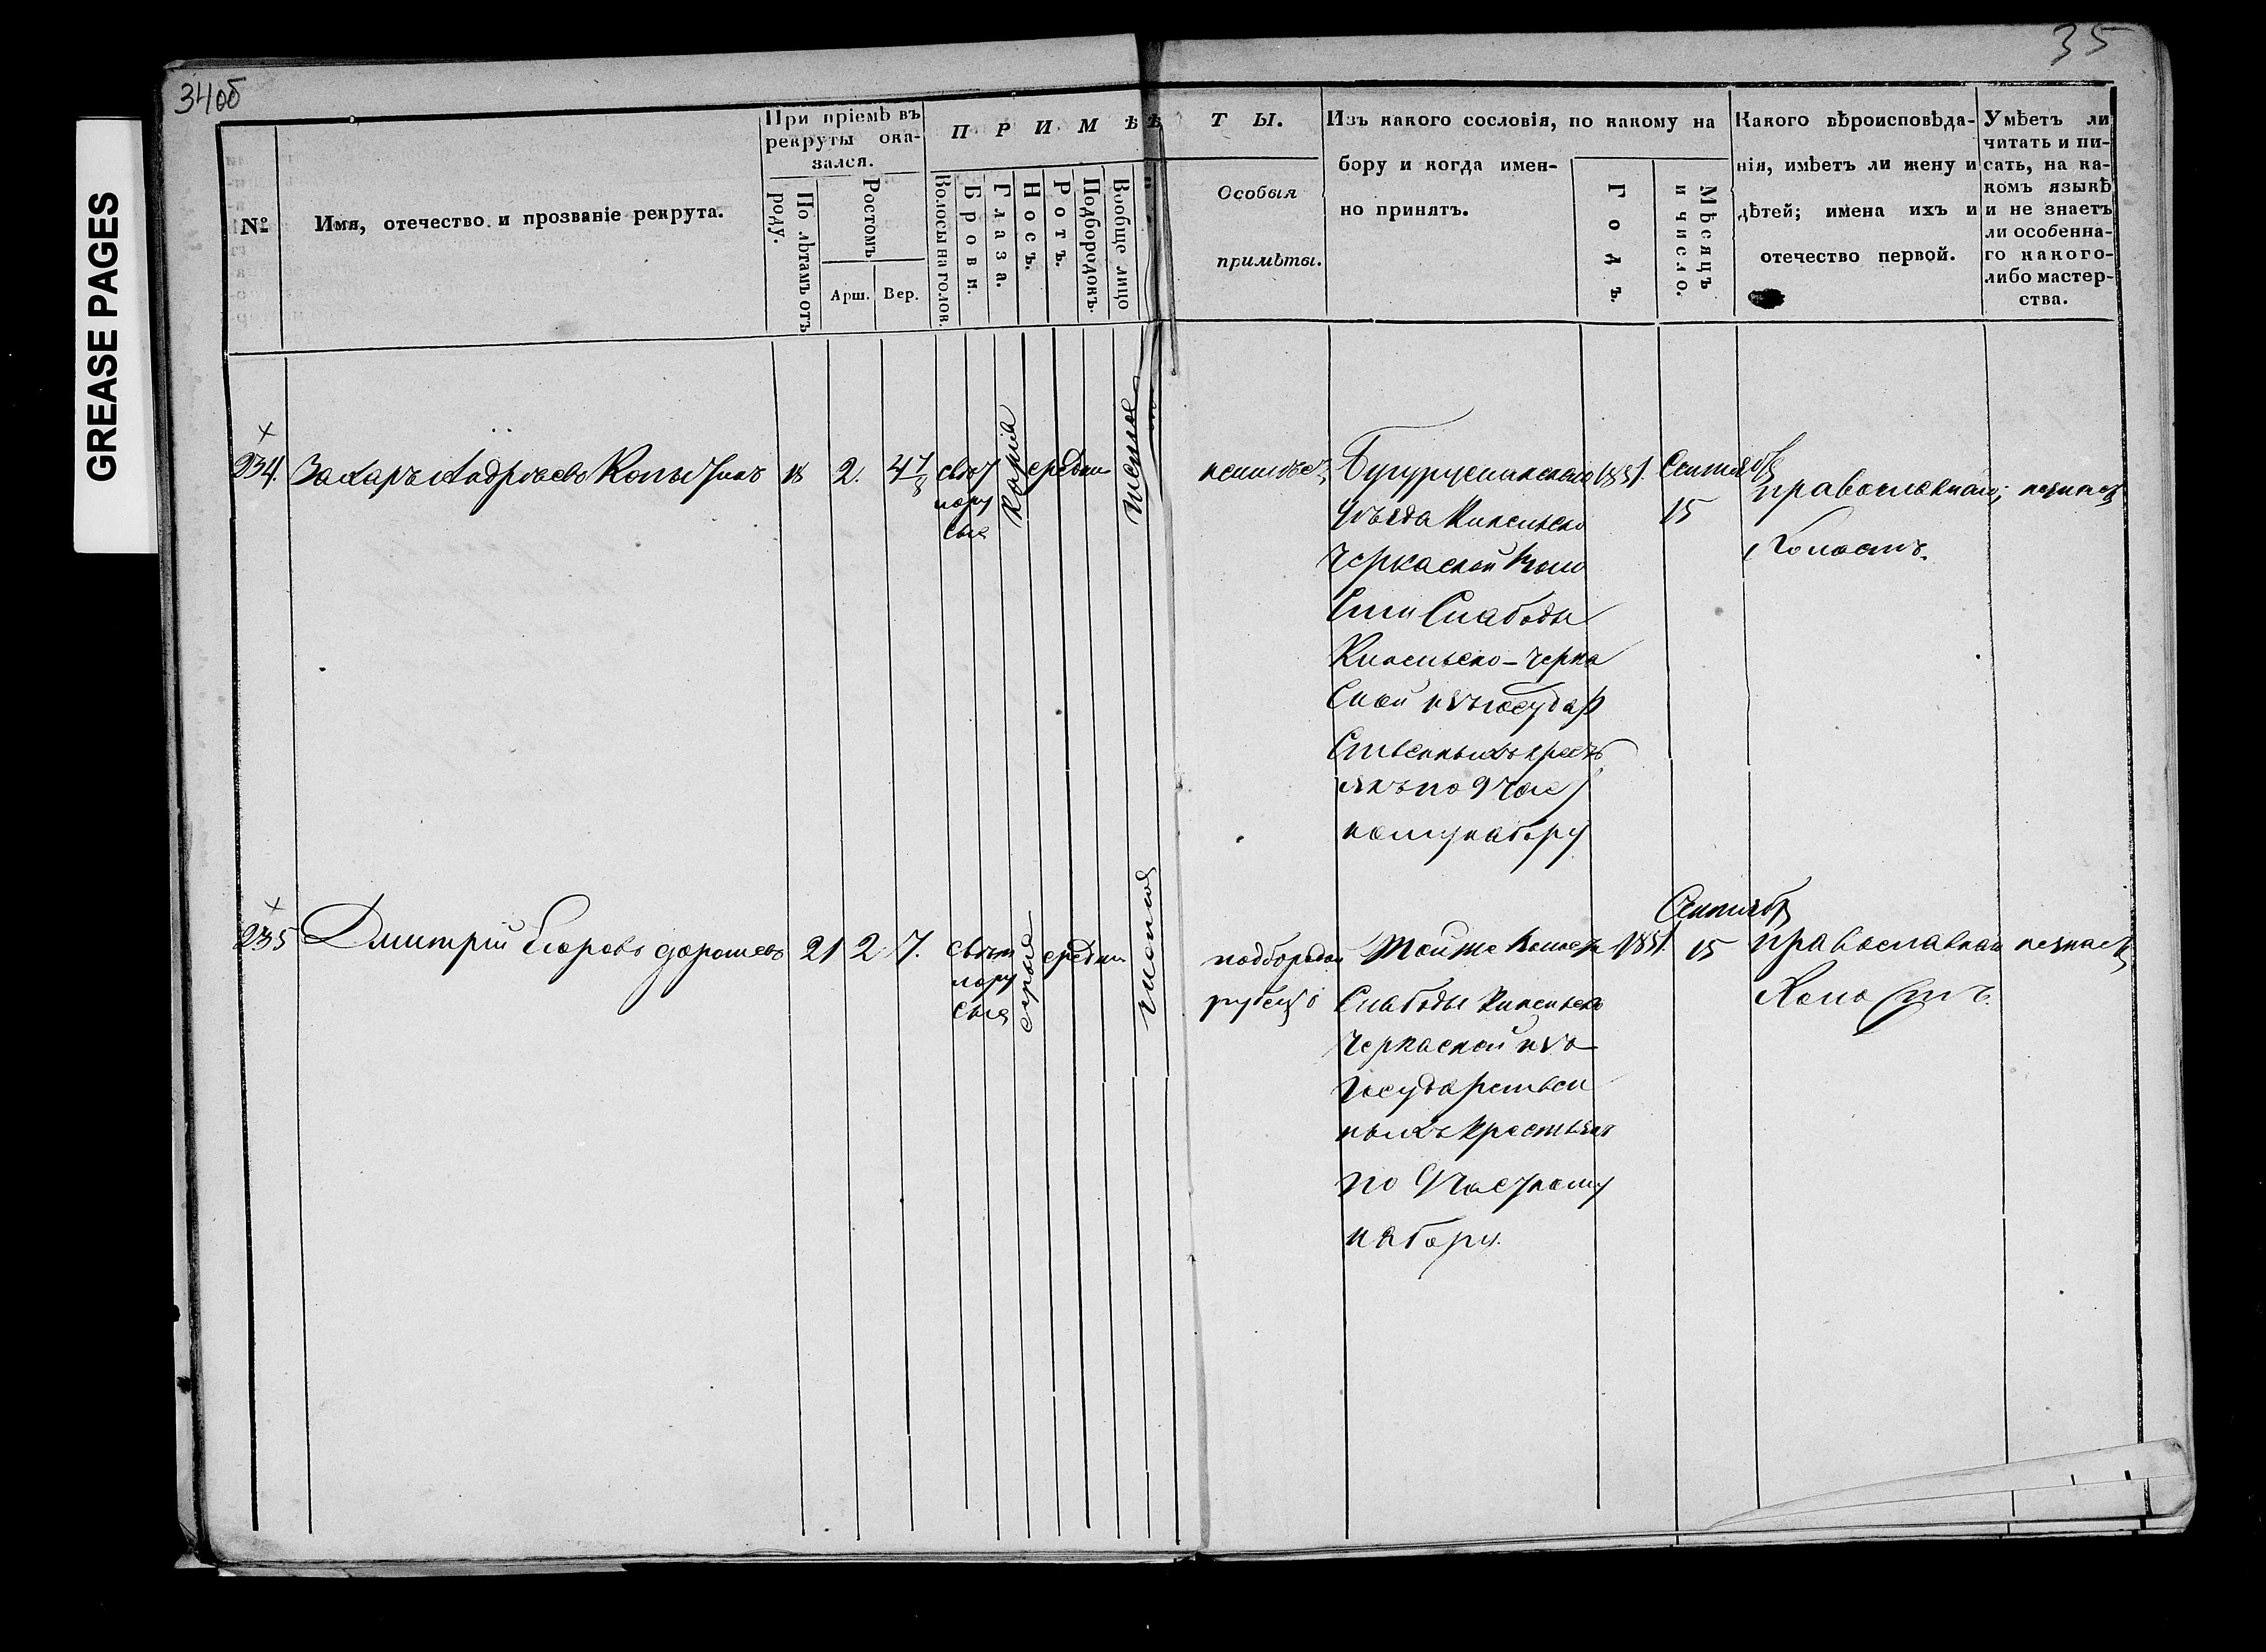 GREASE PAGES
34об
35
№
Имя, отечество и прозваніе рекрута.
При пріемѣ въ
рекруты ока-
зался.
По лѣтамъ отъ
роду.
Ростомъ
Арш.
Вер.
ПРИМѢ
Волосы на голов.
Брови.
Глаза.
Носъ.
Ротъ.
Подбородокъ.
Вообще лицо
ТЫ.
Особыя
примѣты.
Изъ какого сословія, по какому на
бору и когда имен-
но принятъ.
Годъ.
Мѣсяцъ
и число.
Какого вѣроисповѣда-
нія, имѣетъ ли жену и
дѣтей; имена ихъ и
отечество первой.
Умѣетъ ли
читать и пи-
сать, на ка-
комъ языкѣ
и не знаетъ
ли особенна-
го какого-
либо мастер-
ства.
234.
Захаръ Андрѣевъ
18
2.
свѣт
лору
сыя
карія
средни
чистое
Бугурусланскаго
уѣзда Кинельско
Черкаской воло
сти Слабоды
Кинельско-Черка
ской изъ государ
ственныхъ крест
янъ по 9 час
ному набору
1851.
Сентяб
15
православнаго,
холостъ.
235
Дмитрій Егоровъ Дорошевъ
21
2
7.
свѣт
лору
сыя
серыя
средни
чистое
подбородок
рубецъ
Той же волост
Слабоды Кинельско
Черкаской изъ
государствен
ныхъ крестьянъ
по 9 частному
набору.
1851.
Сентяб
15
православнаго
холостъ.